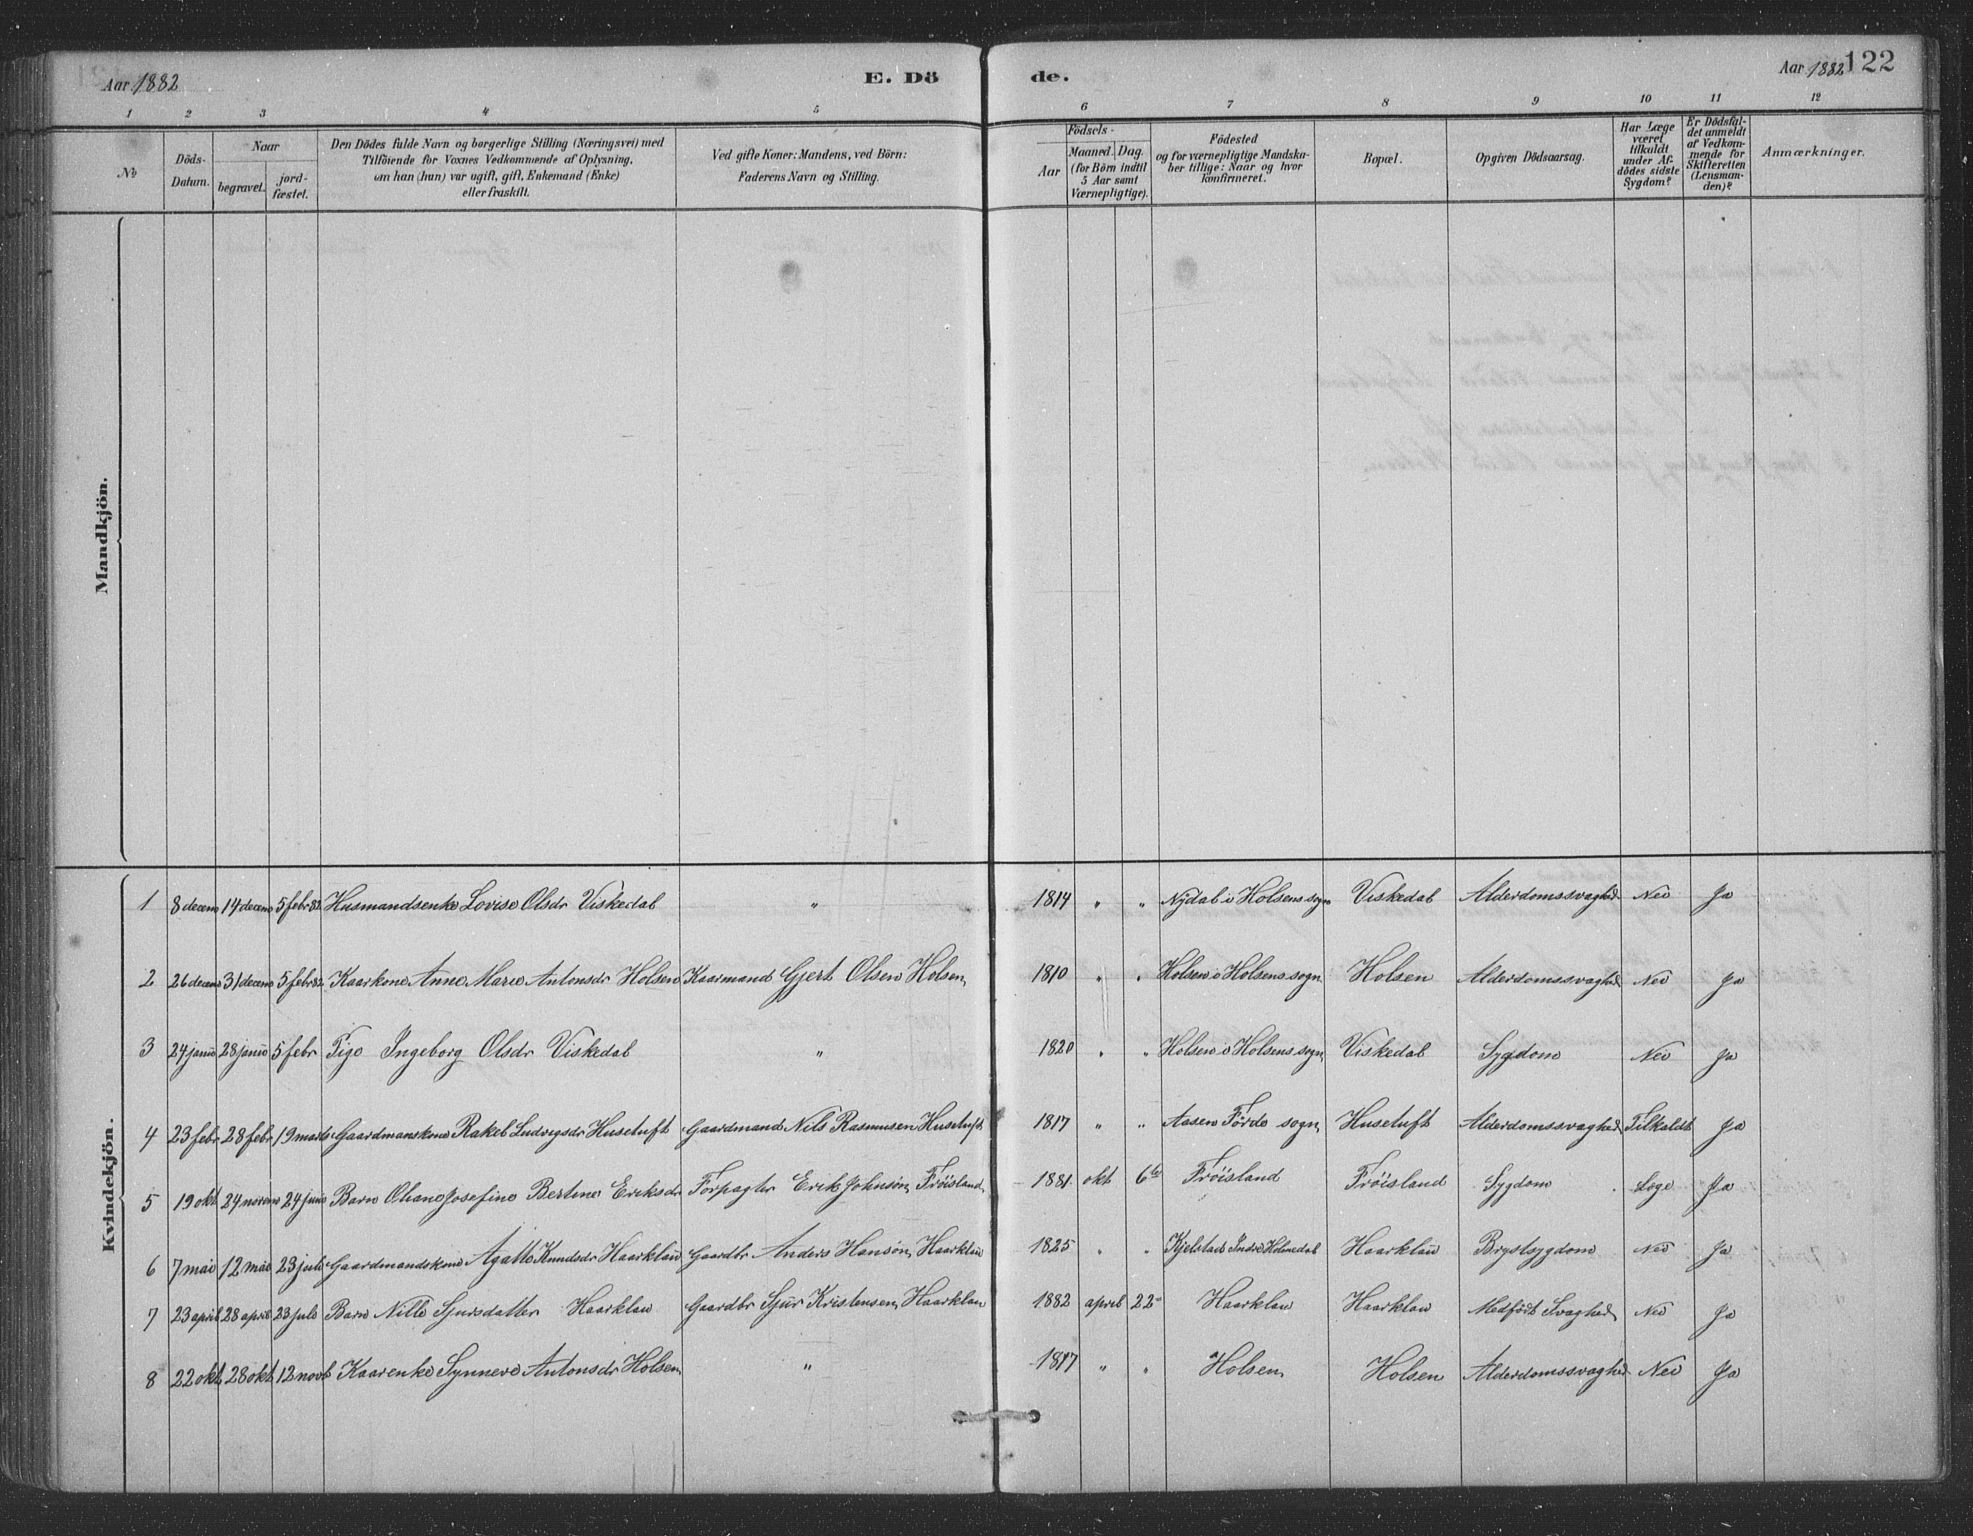 Aar 1882 E. Dö de. Aar 1882 122
1 2 3 4 5 6 7 8 9 10 11 12
No
Döds-
Datum.
Naar
begravet.
jord-
fæstet.
Den Dödes fulde Navn og borgerlige Stilling (Næringsvei) med
Tilföiende for Voxnes Vedkommende af Oplysning,
om han (hun) var ugift, gift, Enkemand (Enke)
eller fraskilt.
Ved gifte Koner: Mandens, ved Börn:
Faderens Navn og Stilling.
Födsels-
Aar
Maaned. Dag.
(for Börn indtil
5 Aar samt
Værnepligtige).
Födested
og for værnepligtige Mandska-
ber tillige: Naar og hvor
konfirmeret.
Bopæl.
Opgiven Dödsaarsag.
Har Læge
været
tilkaldt
under Af-
dödes sidste
Sygdom?
Er Dödsfal-
det anmeldt
af Vedkom-
mende for
Skifteretten
(Lensman-
den)?
Anmærkninger.
Mandkjön.
Kvindekjön.
1 8 decem 14 decem 5 febr 82 Husmandsenke Lovise Olsdr Viskedal " 1814 " " Nydal i Holsens sogn Viskedal Alderdomssvaghed Nei Ja
2 26 decem 31 decem 5 febr 82 Kaarkone Anne Marie Antonsdr Holsen Kaarmand Gjert Olsen Holsen 1810 " " Holsen i Holsens sogn Holsen Alderdomssvaghed Nei Ja
3 24 janu 28 janu 5 febr Pige Ingeborg Olsdr Viskedal " 1820 " " Holsen i Holsens sogn Viskedal Sygdom Nei Ja
4 23 febr 28 febr 19 marts Gaardmanskone Rakel Ludvigsdr Husetuft Gaardmand Nils Rasmusen Husetuft 1817 " " Aasen Førde sogn Husetuft Alderdomssvaghed Tilkaldt Ja
5 19 okt 24 novem 24 juni Barn Oliane Josefine Bertine Eriksdr Forpagter Erik Johnsøn Frøisland 1881 okt 6te Frøisland Frøisland Sygdom Lege Ja
6 7 mai 12 mai 23 juli Gaardmandskone Agatte Knudsdr Haarklau Gaardbr Anders Hansøn Haarklau 1825 " " Kjelstad Indre Holmedal Haarklau Brystsygdom Nei Ja
7 23 april 28 april 23 juli Barn Nille Sjursdatter Haarklau Gaardbr Sjur Kristensen Haarklau 1882 april 22 Haarklau Haarklau Medfødt Svaghed Nei Ja
8 22 okt 28 okt 12 novb Kaarenke Synneve Antonsdr Holsen " 1817 " " Holsen Holsen Alderdomssvaghed Nei Ja